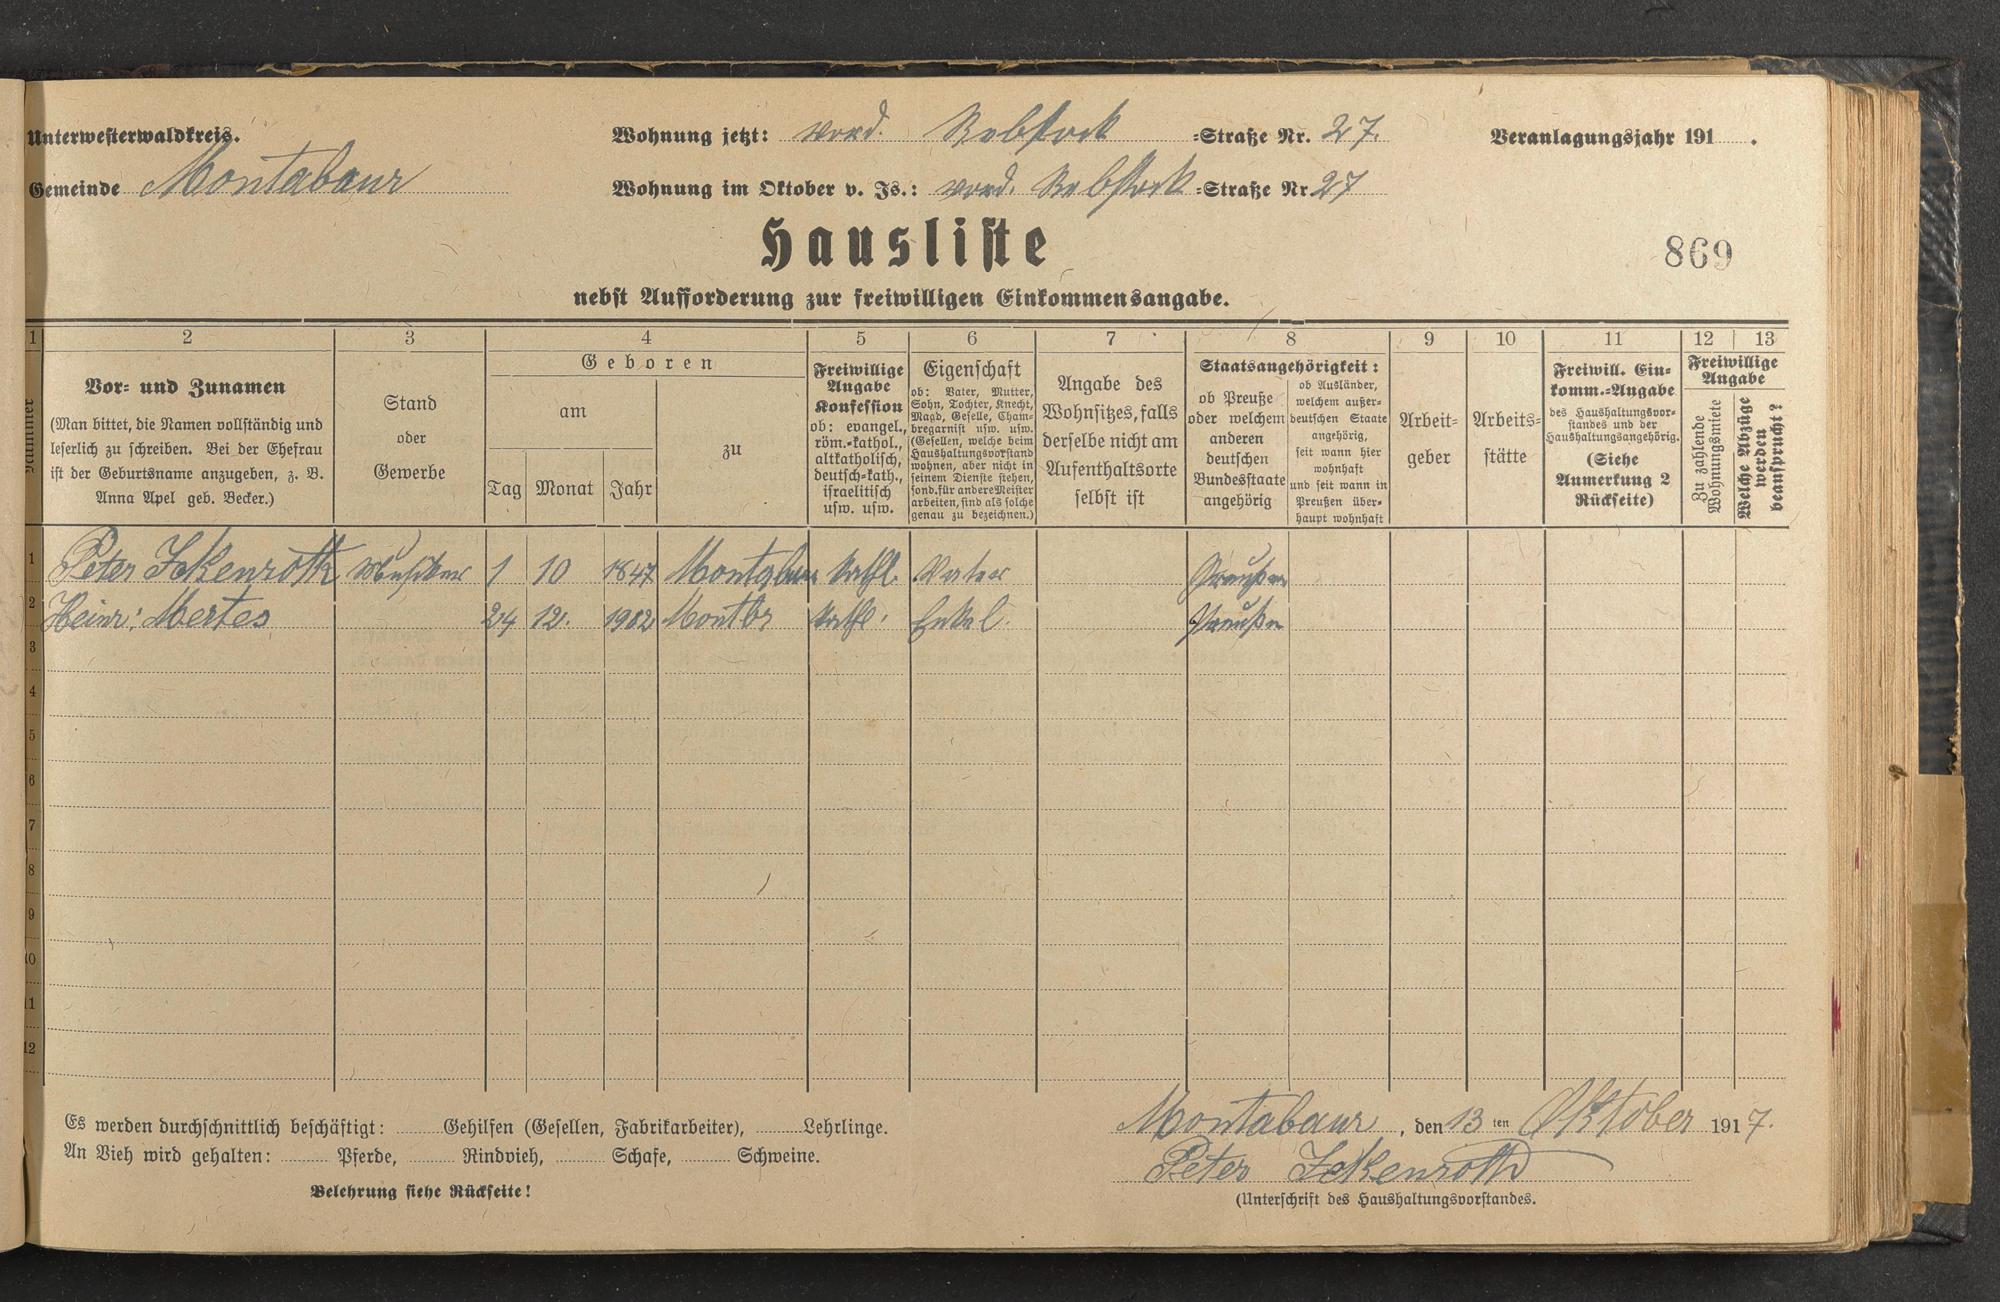 Unterwesterwaldkreis.
Gemeinde Montabaur
Wohnung jetzt: vord. Rebstock =Straße Nr. 27.
Wohnung im Oktober v. Js.: vord. Rebstock =Straße Nr. 27
Veranlagungsjahr 191 .
Hausliste
869
nebst Aufforderung zur freiwilligen Einkommensangabe.
1 2 3 4 5 6 7 8 9 10 11 12 13
Nummer
Vor- und Zunamen
(Man bittet, die Namen vollständig und
leserlich zu schreiben. Bei der Ehefrau
ist der Geburtsname anzugeben, z. B.
Anna Apel geb. Becker.)
Stand
oder
Gewerbe
Geboren
am
Tag Monat Jahr
zu
Freiwillige
Angabe
Konfession
ob: evangel.,
röm.-kathol.,
altkatholisch,
deutsch-kath.,
israelitisch
usw. usw.
Eigenschaft
ob: Vater, Mutter,
Sohn, Tochter, Knecht,
Magd, Geselle, Cham-
bregarnist usw. usw.
(Gesellen, welche beim
Haushaltungsvorstand
wohnen, aber nicht in
seinem Dienste stehen,
sond. für andere Meister
arbeiten, sind als solche
genau zu bezeichnen.)
Angabe des
Wohnsitzes, falls
derselbe nicht am
Aufenthaltsorte
selbst ist
Staatsangehörigkeit:
ob Preuße
oder welchem
anderen
deutschen
Bundesstaate
angehörig
ob Ausländer,
welchem außer-
deutschen Staate
angehörig,
seit wann hier
wohnhaft
und seit wann in
Preußen über-
haupt wohnhaft
Arbeit-
geber
Arbeits-
stätte
Freiwill. Ein-
komm.-Angabe
des Haushaltungsvor-
standes und der
Haushaltungsangehörig.
(Siehe
Anmerkung 2
Rückseite)
Freiwillige
Angabe
Zu zahlende
Wohnungsmiete
Welche Abzüge
werden
beansprucht?
1 Peter Ickenroth Musiker 1 10 1847 Montabaur kathl. Vater Preußen
2 Heinr: Mertes 24 12. 1902 Montbr kathl. Enkel. Preußen
3
4
5
6
7
8
9
10
11
12
Es werden durchschnittlich beschäftigt: Gehilfen (Gesellen, Fabrikarbeiter), Lehrlinge.
An Vieh wird gehalten: Pferde, Rindvieh, Schafe, Schweine.
Belehrung siehe Rückseite!
Montabaur, den 13 ten Oktober 1917.
Peter Ickenroth
(Unterschrift des Haushaltungsvorstandes.